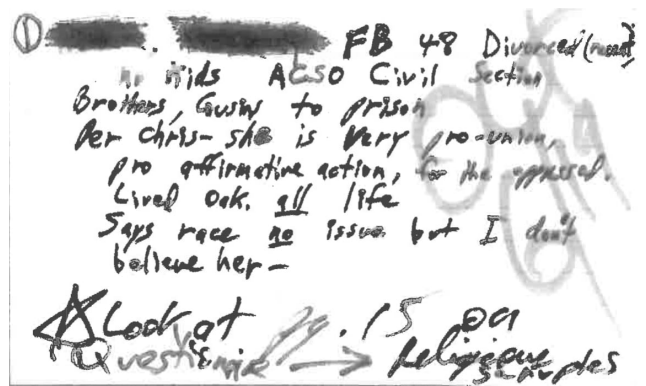 ① . FB 48 Divorced (remar)
no kids ACSO Civil Section
Brothers, Cousins to prison
Per Chris - she is very pro-union,
pro affirmative action, for the oppressed.
Lived Oak. all life
Says race no issue but I don't
believe her -
☆ Look at pg. 15 on
Questionnaire → Religious
scruples